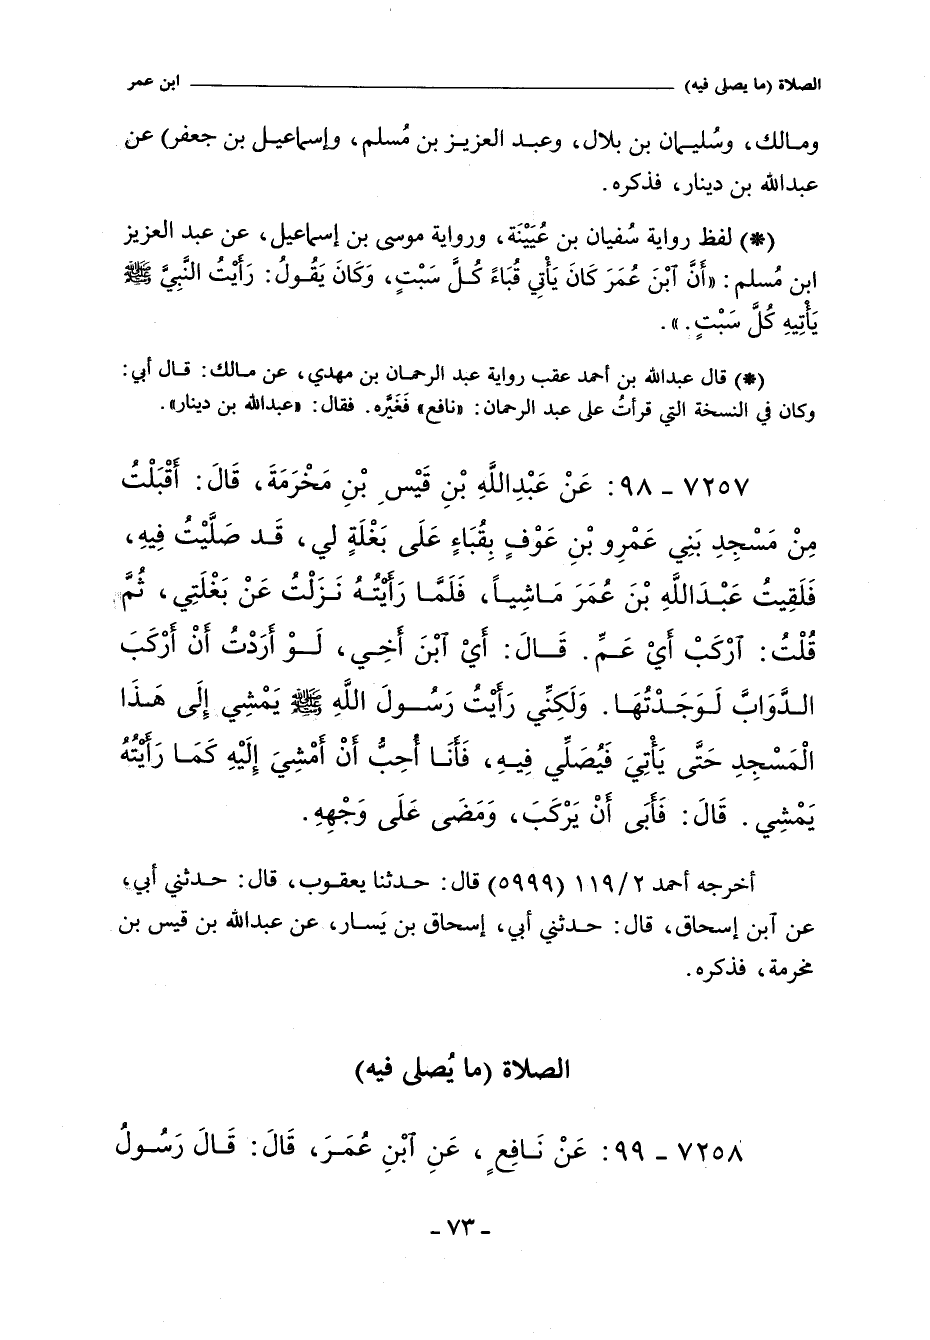 الصلاة (ما يصلى فيه) ابن عمر
ومالك، وسُليمان بن بلال، وعبد العزيز بن مُسلم، وإسماعيل بن جعفر) عن
عبدالله بن دينار، فذكره.
(*) لفظ رواية سُفيان بن عُيَيْنَة، ورواية موسى بن إسماعيل، عن عبد العزيز
ابن مُسلم: «أَنَّ آبْنَ عُمَرَ كَانَ يَأْتِي قُبَاءً كُلَّ سَبْتٍ، وَكَانَ يَقُولُ: رَأَيْتُ النَّبِيَّ ﷺ
يَأْتِيهِ كُلَّ سَبْتٍ.».
(*) قال عبدالله بن أحمد عقب رواية عبد الرحمان بن مهدي، عن مالك: قال أبي:
وكان في النسخة التي قرأتُ على عبد الرحمان: «نافع» فَغَيَّره. فقال: «عبدالله بن دينار».
٧٢٥٧ - ٩٨: عَنْ عَبْدِاللَّهِ بْنِ قَيْسِ بْنِ مَخْرَمَةَ، قَالَ: أَقْبَلْتُ
مِنْ مَسْجِدِ بَنِي عَمْرِو بْنِ عَوْفٍ بِقُبَاءٍ عَلَى بَغْلَةٍ لي، قَد صَلَّيْتُ فِيهِ،
فَلَقِيتُ عَبْدَاللَّهِ بْنَ عُمَرَ مَاشِياً، فَلَمَّا رَأَيْتُهُ نَزَلْتُ عَنْ بَغْلَتِي، ثُمَّ
قُلْتُ: آرْكَبْ أَيْ عَمِّ. قَالَ: أَيْ آبْنَ أَخِي، لَوْ أَرَدْتُ أَنْ أَرْكَبَ
الدَّوَابَّ لَوَجَدْتُهَا. وَلَكِنِّي رَأَيْتُ رَسُولَ اللَّهِ ﷺ يَمْشِي إِلَى هَذَا
الْمَسْجِدِ حَتَّى يَأْتِيَ فَيُصَلِّي فِيهِ، فَأَنَا أُحِبُّ أَنْ أَمْشِيَ إِلَيْهِ كَمَا رَأَيْتُهُ
يَمْشِي. قَالَ: فَأَبَى أَنْ يَرْكَبَ، وَمَضَى عَلَى وَجْهِهِ.
أخرجه أحمد ١١٩/٢ (٥٩٩٩) قال: حدثنا يعقوب، قال: حدثني أبي،
عن آبن إسحاق، قال: حدثني أبي، إسحاق بن يَسار، عن عبدالله بن قيس بن
مخرمة، فذكره.
الصلاة (ما يُصلى فيه)
٧٢٥٨ - ٩٩: عَنْ نَافِعٍ، عَنِ آبْنِ عُمَرَ، قَالَ: قَالَ رَسُولُ
- ٧٣ -